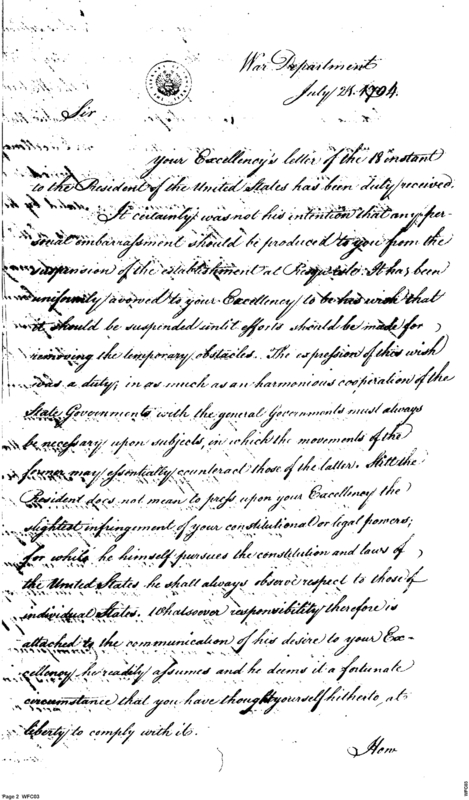 War Department
July 21. 1794.
Sir
your Excellency's letter of the 18th instant
to the President of the United States has been duly received.
It certainly was not his intention that any per-
sonal embarrassment should be produced to you from the
suspension of the establishment at Presqu'isle. It has been
uniformly avowed to your Excellency to be his wish that
it should be suspended until efforts should be made for
removing the temporary obstacles. The expression of this wish
was a duty; in as much as an harmonious cooperation of the
State Governments with the general Governments must always
be necessary upon subjects, in which the movements of the
former may essentially counteract those of the latter. Still the
President does not mean to press upon your Excellency the
slightest infringement of your constitutional or legal powers;
for while he himself pursues the constitution and laws of
the United States he shall always observe respect to those of
individual States. Whatsoever responsibility therefore is
attached to the communication of his desire to your Ex-
cellency he readily assumes and he deems it a fortunate
circumstance that you have thought yourself hitherto, at
liberty to comply with it.
How
Page 2 WFC03
WFC03